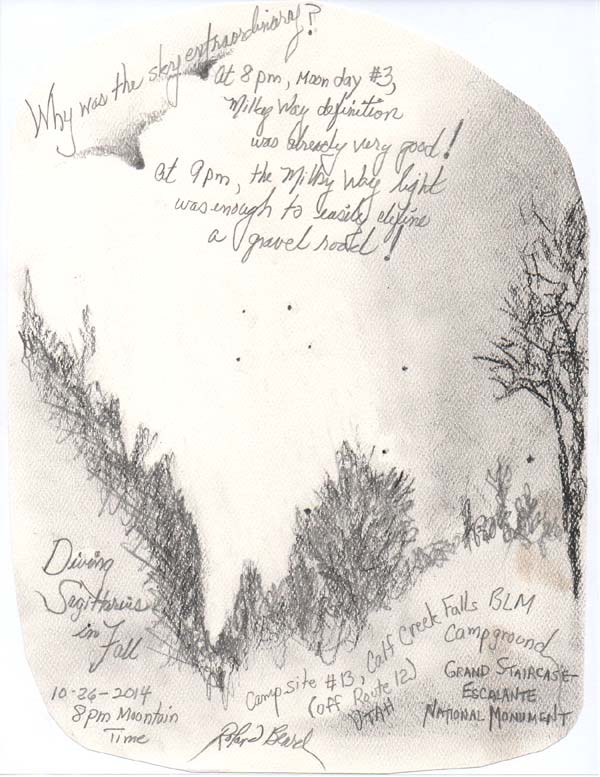 Why was the sky extraordinary?
At 8pm, Moon day #3,
Milky Way definition
was already very good!
at 9pm, the Milky Way light
was enough to easily define
a gravel road!
Diving
Sagittarius
in Fall
10-26-2014
8pm Mountain
Time
Campsite #13, Calf Creek Falls BLM
Campground
(off Route 12)
UTAH
GRAND STAIRCASE-
ESCALANTE
NATIONAL MONUMENT
Roland Beard